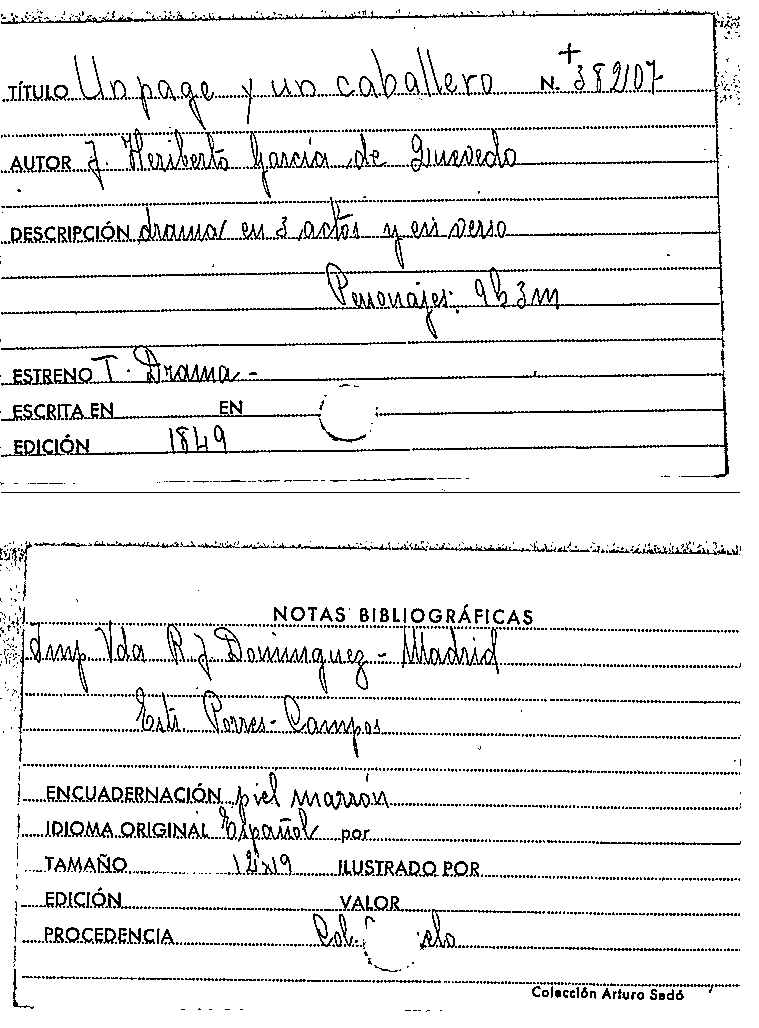 TÍTULO Un page y un caballero N. + 38207
AUTOR J. Heriberto García de Quevedo
DESCRIPCIÓN drama en 3 actos y en verso
Personajes: 9h 3m
ESTRENO T. Drama -
ESCRITA EN EN
EDICIÓN 1849
NOTAS BIBLIOGRÁFICAS
Imp Vda R. J. Dominguez - Madrid
Porres - Campos
ENCUADERNACIÓN piel marrón
IDIOMA ORIGINAL Español por
TAMAÑO 12x19 ILUSTRADO POR
EDICIÓN VALOR
PROCEDENCIA Col.
Colección Arturo Sedó